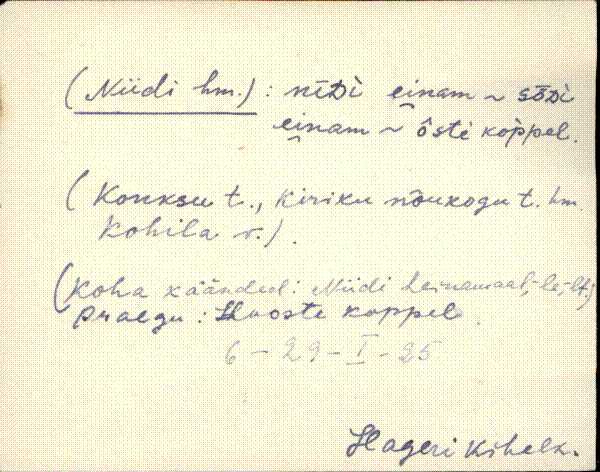 (Niidi hm.) : nīDi einam ~ sōDi
einam ~ ôsti kòppel.
(Konksu t., Kiriku nõukogu t. hm.
Kohila v.).
(Koha käänded: Niidi heinamaal, -le, -lt.)
praegu : Hooste koppel.
6 - 29 - I - 25
Hageri Kihelk.